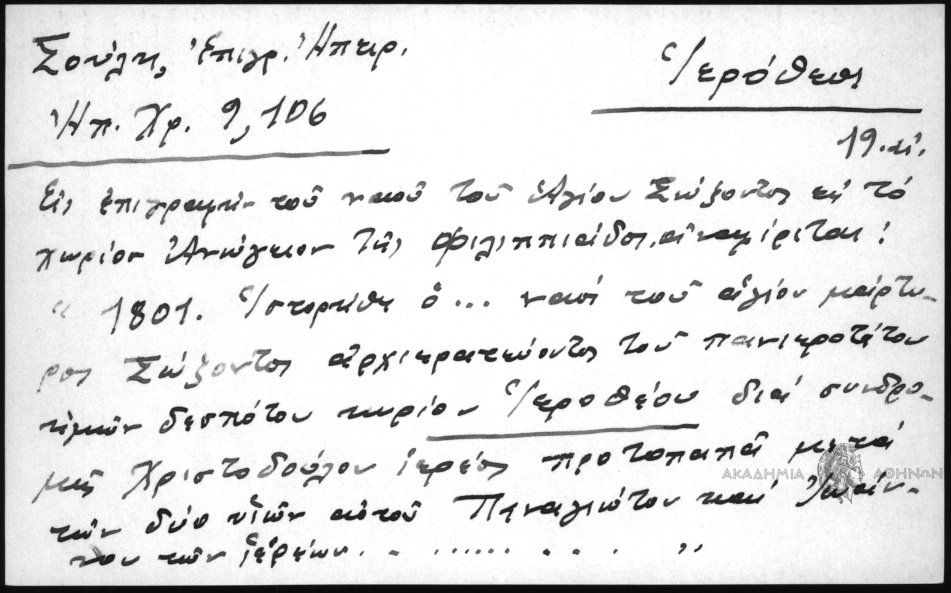 Σούλη, Ἐπιγρ. Ἠπειρ.
Ἠπ. Χρ. 9, 106
Ἱερόθεος
19. αἰ.
Εἰς ἐπιγραφὴν τοῦ ναοῦ τοῦ Ἁγίου Σώζοντος εἰς τὸ
χωρίον Ἀνώγειον τῆς Φιλιππιάδος, ἀναφέρεται:
" 1801. Ἱστορήθη ὁ ... ναὸς τοῦ ἁγίου μάρτυ-
ρος Σώζοντος ἀρχιερατεύοντος τοῦ πανιεροτάτου
ἡμῶν δεσπότου κυρίου Ἱεροθέου διά συνδρο-
μῆς Χριστοδούλου ἱερέος πρωτοπαπᾶ μετά
τῶν δύο υἱῶν αὐτοῦ Παναγιώτου καί Ἰωάν-
νου τῶν ἱερέων . . ...... . . . "
ΑΚΑΔΗΜΙΑ ΑΘΗΝΩΝ